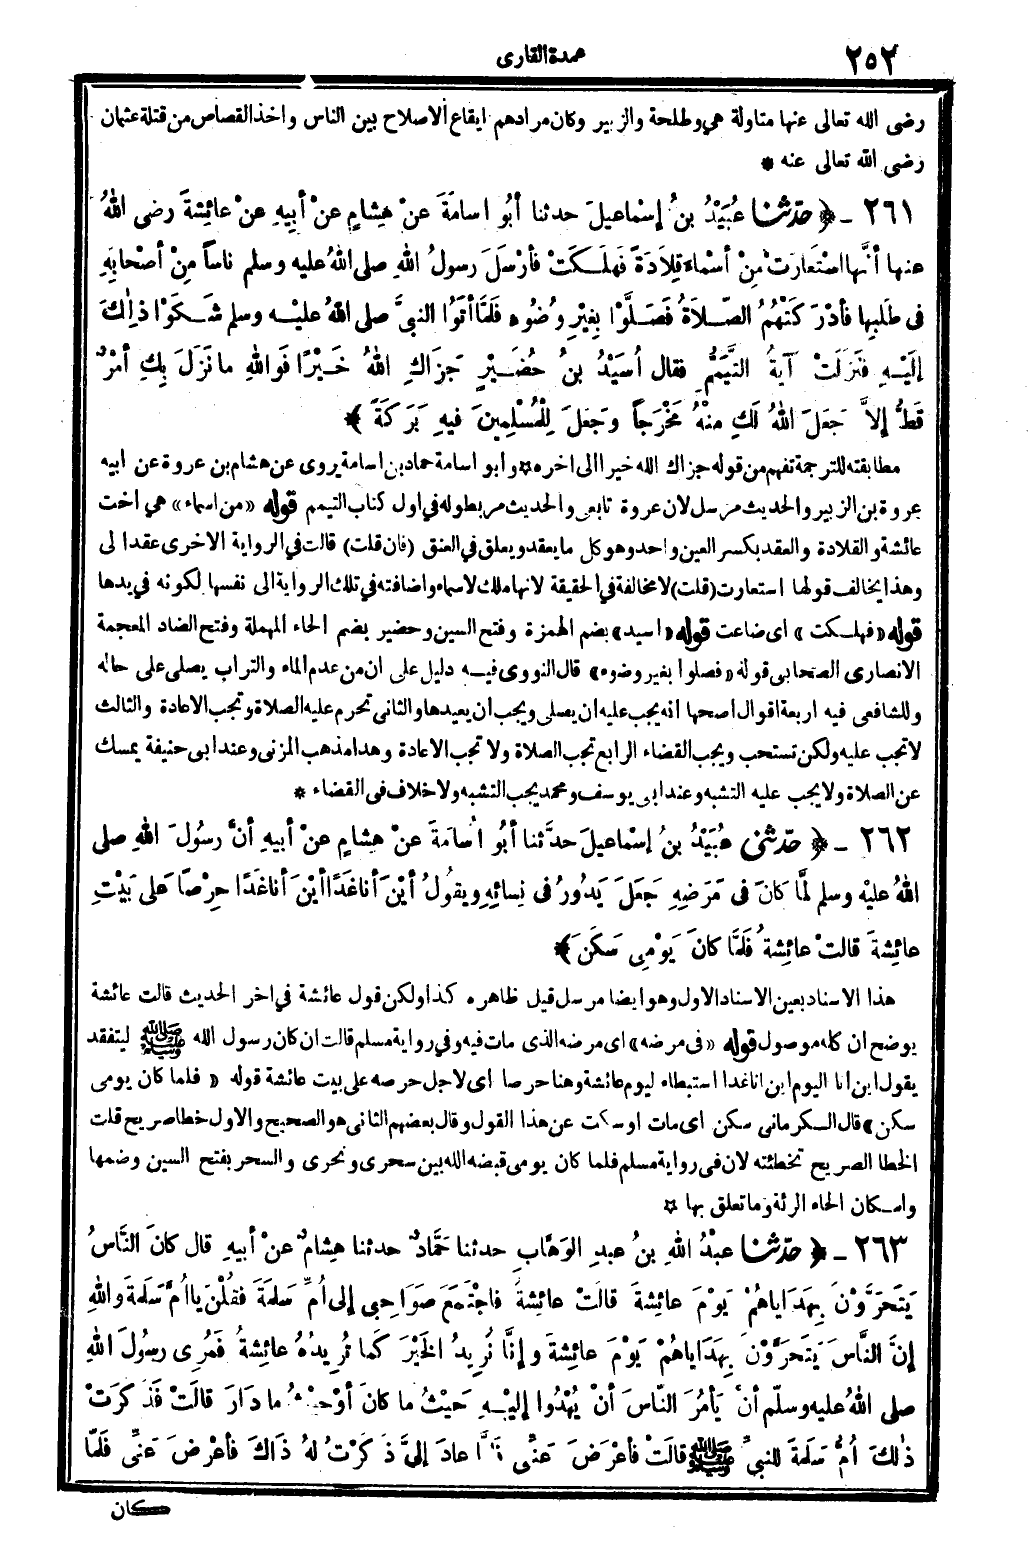 ٢٥٢
عمدة القارى
رضى الله تعالى عنها متاولة هى وطلحة والزبير وكان مرادهم ايقاع الاصلاح بين الناس واخذ القصاص من قتلة عثمان
رضى الله تعالى عنه *
٢٦١ ـ ﴿ حَدَّثَنَا عُبَيْدُ بنُ إِسْماعِيلَ حدثنا أبُو اسامَةَ عنْ هِشامٍ عنْ أبِيهِ عنْ عائِشَةَ رضى اللهُ
عنها أنَّها اسْتَعارَتْ مِنْ أسْماءَ قِلادَةً فَهَلَكَتْ فأرْسَلَ رسولُ اللهِ صلى اللهُ عليه وسلم ناساً مِنْ أصْحابِهِ
فى طَلَبِها فأدْرَكَتْهُمُ الصَّلاَةُ فَصَلَّوْا بِغَيْرِ وُضُوءٍ فَلَمَّا أتَوُا النبىَّ صلى اللهُ عليْهِ وسلم شَكَوْا ذٰلِكَ
إلَيْهِ فَنَزَلَتْ آيَةُ التَّيَمُّمِ فقال أُسَيْدُ بنُ حُضَيْرٍ جَزَاكِ اللهُ خَيْرًا فَوَاللهِ ما نَزَلَ بِكِ أمْرٌ
قَطُّ إلاَّ جَعَلَ اللهُ لَكِ مِنْهُ مَخْرَجاً وجَعَلَ لِلْمُسْلِمِينَ فِيهِ بَرَكَةً ﴾
مطابقته للترجمة تفهم من قوله جزاك الله خيرا الى اخره * وابو اسامة حماد بن اسامة يروى عن هشام بن عروة عن ابيه
عروة بن الزبير والحديث مرسل لان عروة تابعى والحديث مر بطوله فى اول كتاب التيمم قوله «من اسماء» هى اخت
عائشة والقلادة والعقد بكسر العين واحد وهو كل ما يعقد ويعلق فى العنق (فان قلت) قالت فى الرواية الاخرى عقدا لى
وهذا يخالف قولها استعارت (قلت) لا مخالفة فى الحقيقة لانها ملك لاسماء واضافته فى تلك الرواية الى نفسها لكونه فى يدها
قوله «فهلكت» اى ضاعت قوله «اسيد» بضم الهمزة وفتح السين وحضير بضم الحاء المهملة وفتح الضاد المعجمة
الانصارى الصحابى قوله «فصلوا بغير وضوء» قال النووى فيه دليل على ان من عدم الماء والتراب يصلى على حاله
وللشافعى فيه اربعة اقوال اصحها انه يجب عليه ان يصلى ويجب أن يعيدها والثانى تحرم عليه الصلاة وتجب الاعادة والثالث
لا تجب عليه ولكن تستحب ويجب القضاء الرابع تجب الصلاة ولا تجب الاعادة وهذا مذهب المزنى وعند ابى حنيفة يمسك
عن الصلاة ولا يجب عليه التشبه وعند ابى يوسف ومحمد يجب التشبه ولا خلاف فى القضاء *
٢٦٢ ـ ﴿ حَدَّثَنِى عُبَيْدُ بنُ إِسْماعِيلَ حدَّثنا أبُو اُسامَةَ عنْ هِشامٍ عنْ أبيهِ أنَّ رسُولَ اللهِ صلى
اللهُ عليْه وسلم لَمَّا كانَ فى مَرَضِهِ جَعَلَ يَدُورُ فى نِسائِهِ ويقُولُ أيْنَ أنا غَدًا أيْنَ أنا غَدًا حِرْصًا عَلى بَيْتِ
عائِشَةَ قالتْ عائِشَةُ فَلَمَّا كانَ يَوْمِى سَكَنَ ﴾
هذا الاسناد بعين الاسناد الاول وهو ايضا مرسل قيل ظاهره كذا ولكن قول عائشة فى اخر الحديث قالت عائشة
يوضح ان كله موصول قوله «فى مرضه» اى مرضه الذى مات فيه وفى رواية مسلم قالت ان كان رسول الله ﷺ ليتفقد
يقول اين انا اليوم اين انا غدا استبطاء ليوم عائشة وهنا حرصا اى لاجل حرصه على بيت عائشة قوله «فلما كان يومى
سكن» قال الكرمانى سكن اى مات او سكت عن هذا القول وقال بعضهم الثانى هو الصحيح والاول خطا صريح قلت
الخطا الصريح تخطئته لان فى رواية مسلم فلما كان يومى قبضه الله بين سحرى ونحرى والسحر بفتح السين وضمها
واسكان الحاء الرئة وما تعلق بها *
٢٦٣ ـ ﴿ حَدَّثَنَا عبْدُ اللهِ بنُ عبدِ الوَهَّابِ حدثنا حَمَّادٌ حدثنا هِشامٌ عنْ أبيهِ قال كانَ النَّاسُ
يَتَحَرَّوْنَ بِهَدَاياهُمْ يَوْمَ عائِشَةَ قالَتْ عائِشَةُ فاجْتَمَعَ صَوَاحِبِى إلى أُمِّ سَلَمَةَ فقُلْنَ يا أُمَّ سَلَمَةَ واللهِ
إنَّ النَّاسَ يَتَحَرَّوْنَ بِهَدَاياهُمْ يَوْمَ عائِشَةَ وإنَّا نُرِيدُ الخَيْرَ كَما تُرِيدُهُ عائِشَةُ فَمُرِى رسُولَ اللهِ
صلى اللهُ عليه وسلّم أنْ يَأمُرَ النَّاسَ أنْ يُهْدُوا إلَيْهِ حَيْثُ ما كانَ أوْ حَيْثُ ما دَارَ قالَتْ فَذَكَرَتْ
ذٰلِكَ أُمُّ سَلَمَةَ لِلنبىِّ ﷺ قالَتْ فأعْرَضَ عَنِّى فَلَمَّا عادَ إلَىَّ ذَكَرْتُ لهُ ذَاكَ فأعْرَضَ عَنِّى فَلَمَّا
كان